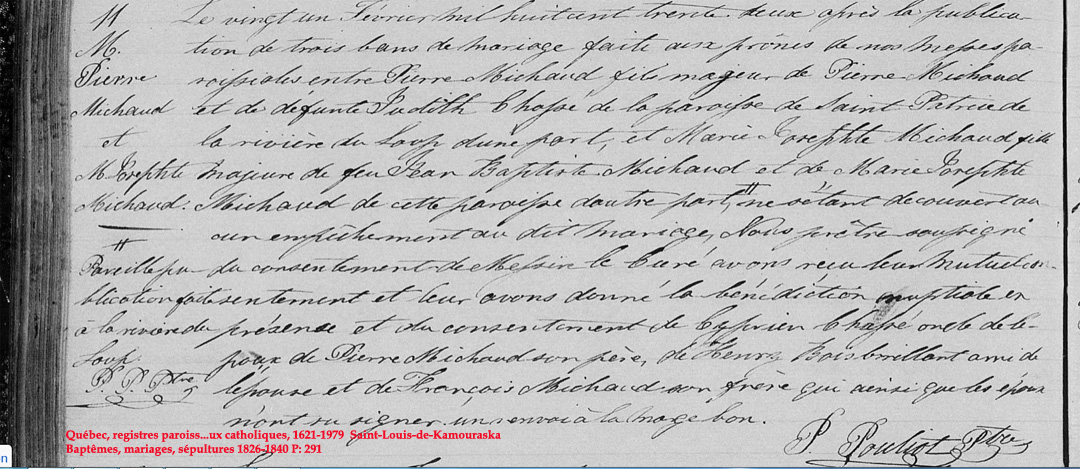 11
M.
Pierre
Michaud
et
M. Josephte
Michaud.
Le vingt un Février mil huit cent trente deux après la publica-
tion de trois bans de mariage faite aux prônes de nos messes pa-
roissiales entre Pierre Michaud fils majeur de Pierre Michaud
et de défunte Judith Chassé de la paroisse de Saint Patrice de
la rivière du Loup d'une part, et Marie Josephte Michaud fille
majeure de feu Jean Baptiste Michaud et de Marie Josephte
Michaud de cette paroisse d'autre part, # ne s'étant decouvert au
cun empêchement au dit mariage, Nous prêtre soussigné
du consentement de Messire le Curé avons reçu leur mutuel con-
sentement et leur avons donné la bénédiction nuptiale en
présence et du consentement de Cyprien Chassé oncle de l'é-
poux, de Pierre Michaud son père, de Henry Boisbrillant ami de
l'épouse et de François Michaud son frère qui ainsi que les époux
n'ont su signer, un renvoi à la marge bon.
P. Pouliot Ptre
#
Pareille pu-
blication faite
à la rivière du
Loup.
P. P. Ptre
Québec, registres paroiss...ux catholiques, 1621-1979 Saint-Louis-de-Kamouraska
Baptêmes, mariages, sépultures 1826-1840 P: 291
on